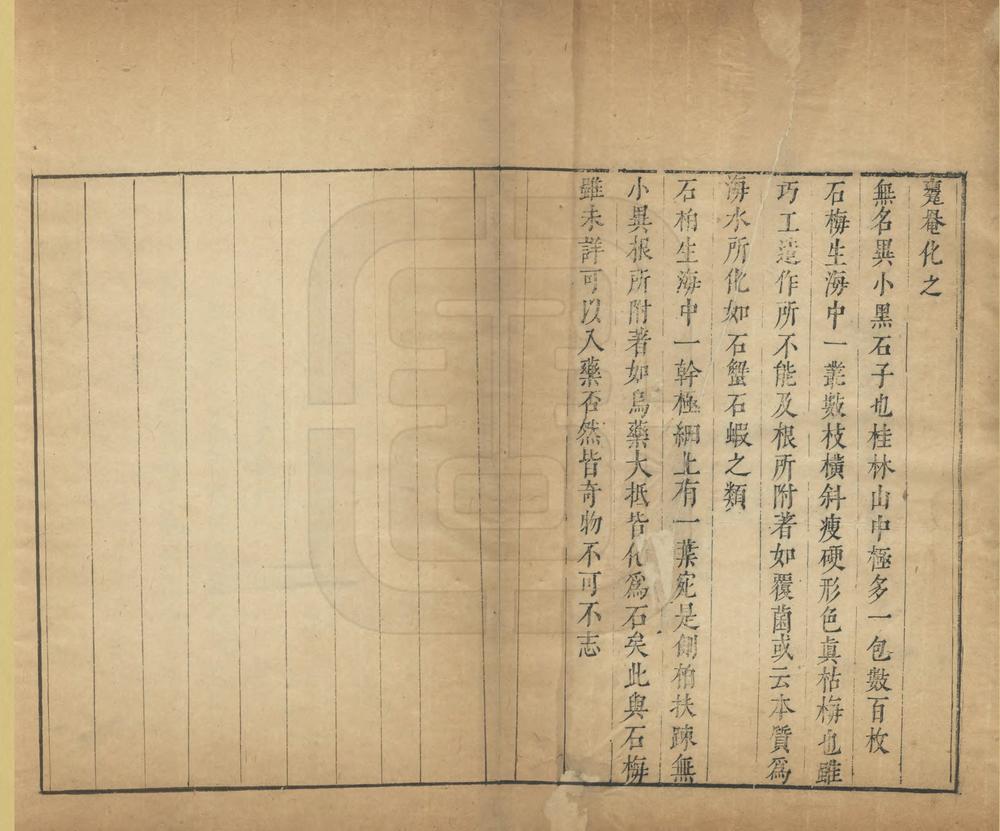 鼍卷化之
無名異小黑石子也桂林山中極多一包數百枚
石梅生海中一叢數枝橫斜瘦硬形色真枯梅也雖
巧工造作所不能及根所附著如覆菌或云本質為
海水所化如石蟹石蝦之類
石柏生海中一幹極細上有一葉宛是側柏扶踈無
小異根所附著如烏藥大抵皆化為石矣此與石梅
雖未詳可以入藥否然皆奇物不可不志